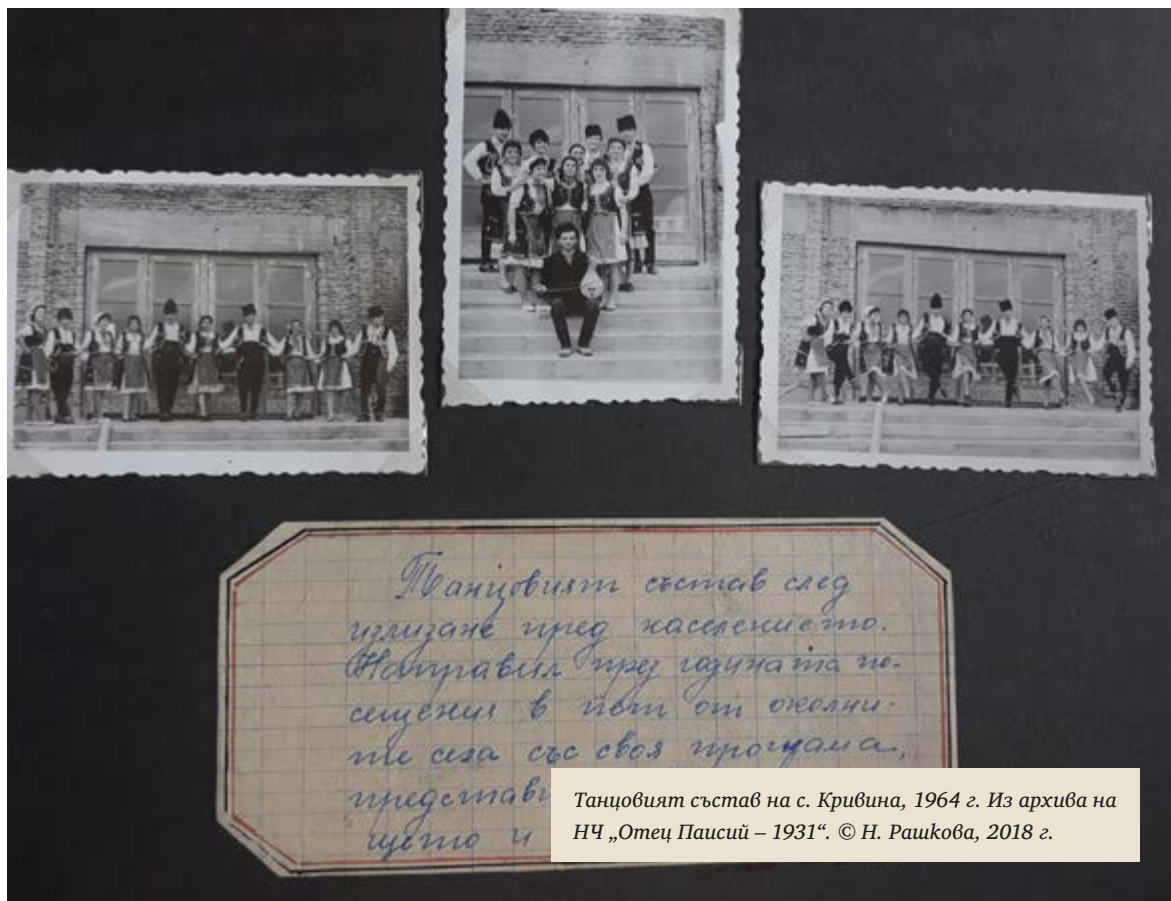 Танцовият състав след
излизане пред населението.
Направил през годината по-
сещения в пет от околни-
те села със своя програма,
щето и
Танцовият състав на с. Кривина, 1964 г. Из архива на
НЧ „Отец Паисий – 1931“. © Н. Рашкова, 2018 г.